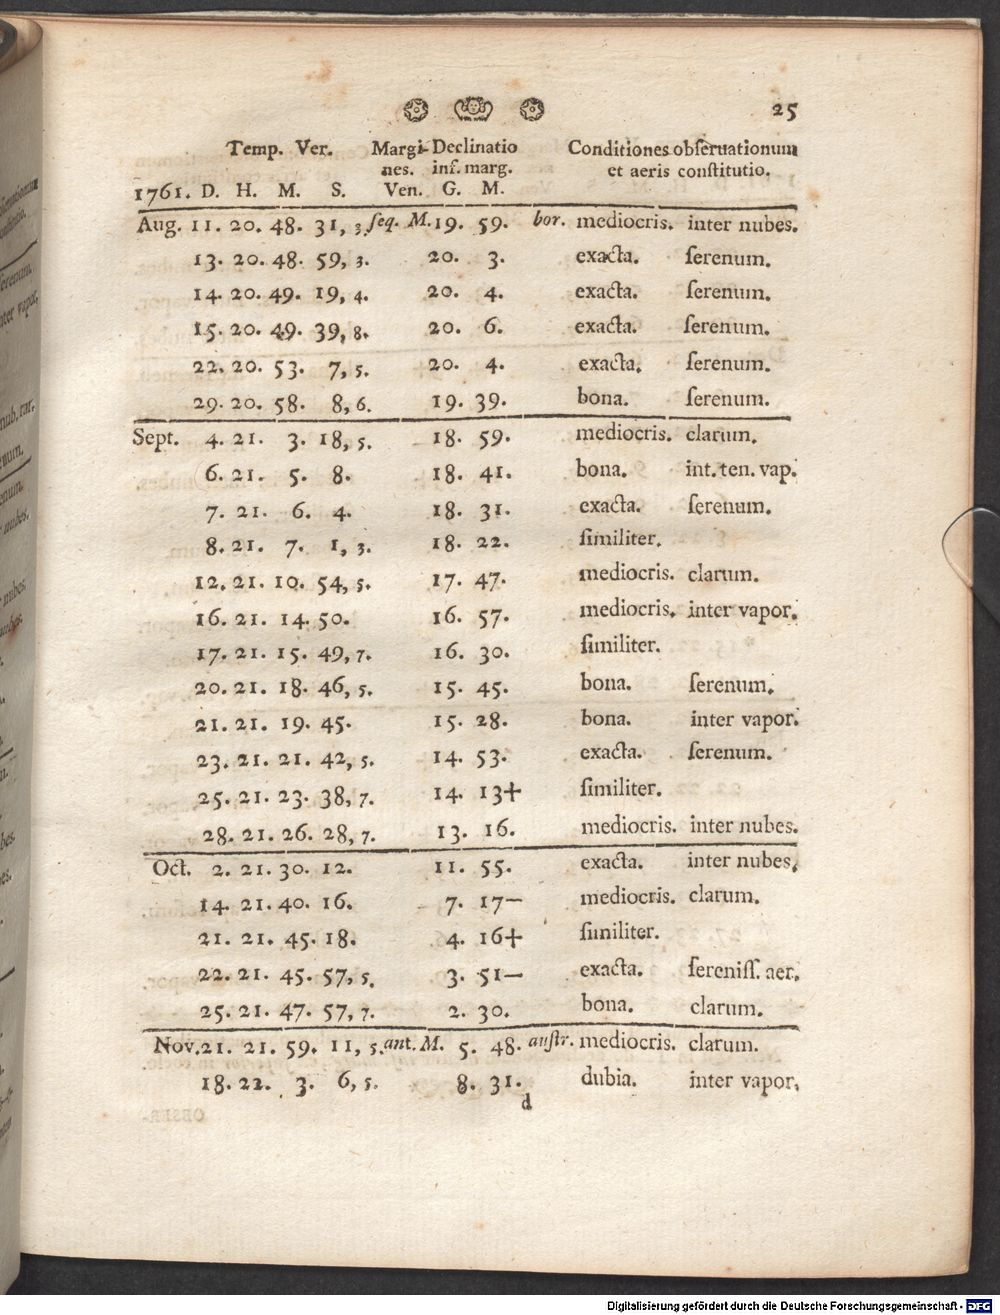 25
Temp. Ver. Margi- Declinatio Conditiones obſeruationum
nes. inf. marg. et aeris conſtitutio.
1761. D. H. M. S. Ven. G. M.
Aug. 11. 20. 48. 31, 3. ſeq. M. 19. 59. bor. mediocris. inter nubes.
13. 20. 48. 59, 3. 20. 3. exacta. ſerenum.
14. 20. 49. 19, 4. 20. 4. exacta. ſerenum.
15. 20. 49. 39, 8. 20. 6. exacta. ſerenum.
22. 20. 53. 7, 5. 20. 4. exacta. ſerenum.
29. 20. 58. 8, 6. 19. 39. bona. ſerenum.
Sept. 4. 21. 3. 18, 5. 18. 59. mediocris. clarum.
6. 21. 5. 8. 18. 41. bona. int. ten. vap.
7. 21. 6. 4. 18. 31. exacta. ſerenum.
8. 21. 7. 1, 3. 18. 22. ſimiliter.
12. 21. 10. 54, 5. 17. 47. mediocris. clarum.
16. 21. 14. 50. 16. 57. mediocris. inter vapor.
17. 21. 15. 49, 7. 16. 30. ſimiliter.
20. 21. 18. 46, 5. 15. 45. bona. ſerenum.
21. 21. 19. 45. 15. 28. bona. inter vapor.
23. 21. 21. 42, 5. 14. 53. exacta. ſerenum.
25. 21. 23. 38, 7. 14. 13+ ſimiliter.
28. 21. 26. 28, 7. 13. 16. mediocris. inter nubes.
Oct. 2. 21. 30. 12. 11. 55. exacta. inter nubes.
14. 21. 40. 16. 7. 17— mediocris. clarum.
21. 21. 45. 18. 4. 16+ ſimiliter.
22. 21. 45. 57, 5. 3. 51— exacta. ſereniſſ. aer.
25. 21. 47. 57, 7. 2. 30. bona. clarum.
Nov. 21. 21. 59. 11, 5. ant. M. 5. 48. auſtr. mediocris. clarum.
18. 22. 3. 6, 5. 8. 31. dubia. inter vapor.
d
Digitalisierung gefördert durch die Deutsche Forschungsgemeinschaft - DFG